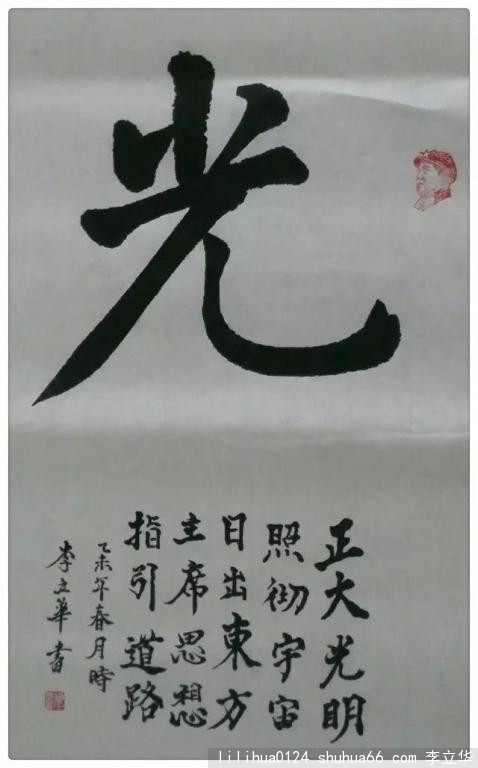 光
正大光明
照彻宇宙
日出東方
主席思想
指引道路
乙未年春月時
李立華書
lilihua0124 shuhua66.com 李立华